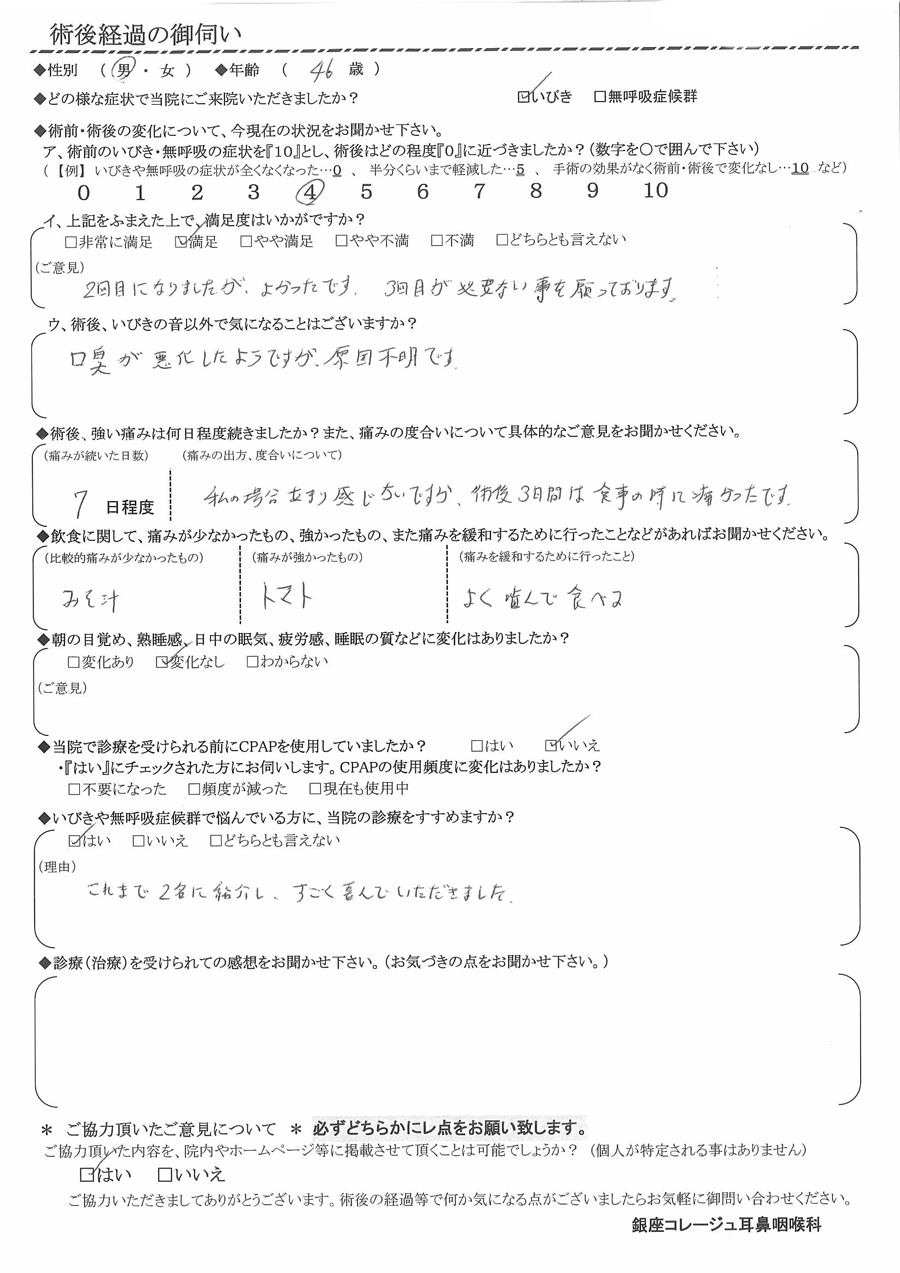 術後経過の御伺い
◆性別 （ 男 ・ 女 ） ◆年齢 （ 46 歳 ）
◆どの様な症状で当院にご来院いただきましたか？ ☑いびき □無呼吸症候群
◆術前・術後の変化について、今現在の状況をお聞かせ下さい。
ア、術前のいびき・無呼吸の症状を『10』とし、術後はどの程度『0』に近づきましたか？（数字を○で囲んで下さい）
（【例】 いびきや無呼吸の症状が全くなくなった…0 、 半分くらいまで軽減した…5 、 手術の効果がなく術前・術後で変化なし…10 など）
0 1 2 3 4 5 6 7 8 9 10
イ、上記をふまえた上で、満足度はいかがですか？
□非常に満足 ☑満足 □やや満足 □やや不満 □不満 □どちらとも言えない
（ご意見）
2回目になりましたが、よかったです。 3回目が必要ない事を願っております。
ウ、術後、いびきの音以外で気になることはございますか？
口臭が悪化したようですが、原因不明です。
◆術後、強い痛みは何日程度続きましたか？また、痛みの度合いについて具体的なご意見をお聞かせください。
（痛みが続いた日数） （痛みの出方、度合いについて）
7 日程度 私の場合あまり感じないですが、術後3日間は食事の時に痛かったです。
◆飲食に関して、痛みが少なかったもの、強かったもの、また痛みを緩和するために行ったことなどがあればお聞かせください。
（比較的痛みが少なかったもの） （痛みが強かったもの） （痛みを緩和するために行ったこと）
みそ汁 トマト よく噛んで食べる
◆朝の目覚め、熟睡感、日中の眠気、疲労感、睡眠の質などに変化はありましたか？
□変化あり ☑変化なし □わからない
（ご意見）
◆当院で診療を受けられる前にCPAPを使用していましたか？ □はい ☑いいえ
・『はい』にチェックされた方にお伺いします。CPAPの使用頻度に変化はありましたか？
□不要になった □頻度が減った □現在も使用中
◆いびきや無呼吸症候群で悩んでいる方に、当院の診療をすすめますか？
☑はい □いいえ □どちらとも言えない
（理由）
これまで2名に紹介し、すごく喜んでいただきました。
◆診療（治療）を受けられての感想をお聞かせ下さい。（お気づきの点をお聞かせ下さい。）
＊ ご協力頂いたご意見について ＊ 必ずどちらかにレ点をお願い致します。
ご協力頂いた内容を、院内やホームページ等に掲載させて頂くことは可能でしょうか？ （個人が特定される事はありません）
☑はい □いいえ
ご協力いただきましてありがとうございます。術後の経過等で何か気になる点がございましたらお気軽に御問い合わせください。
銀座コレージュ耳鼻咽喉科